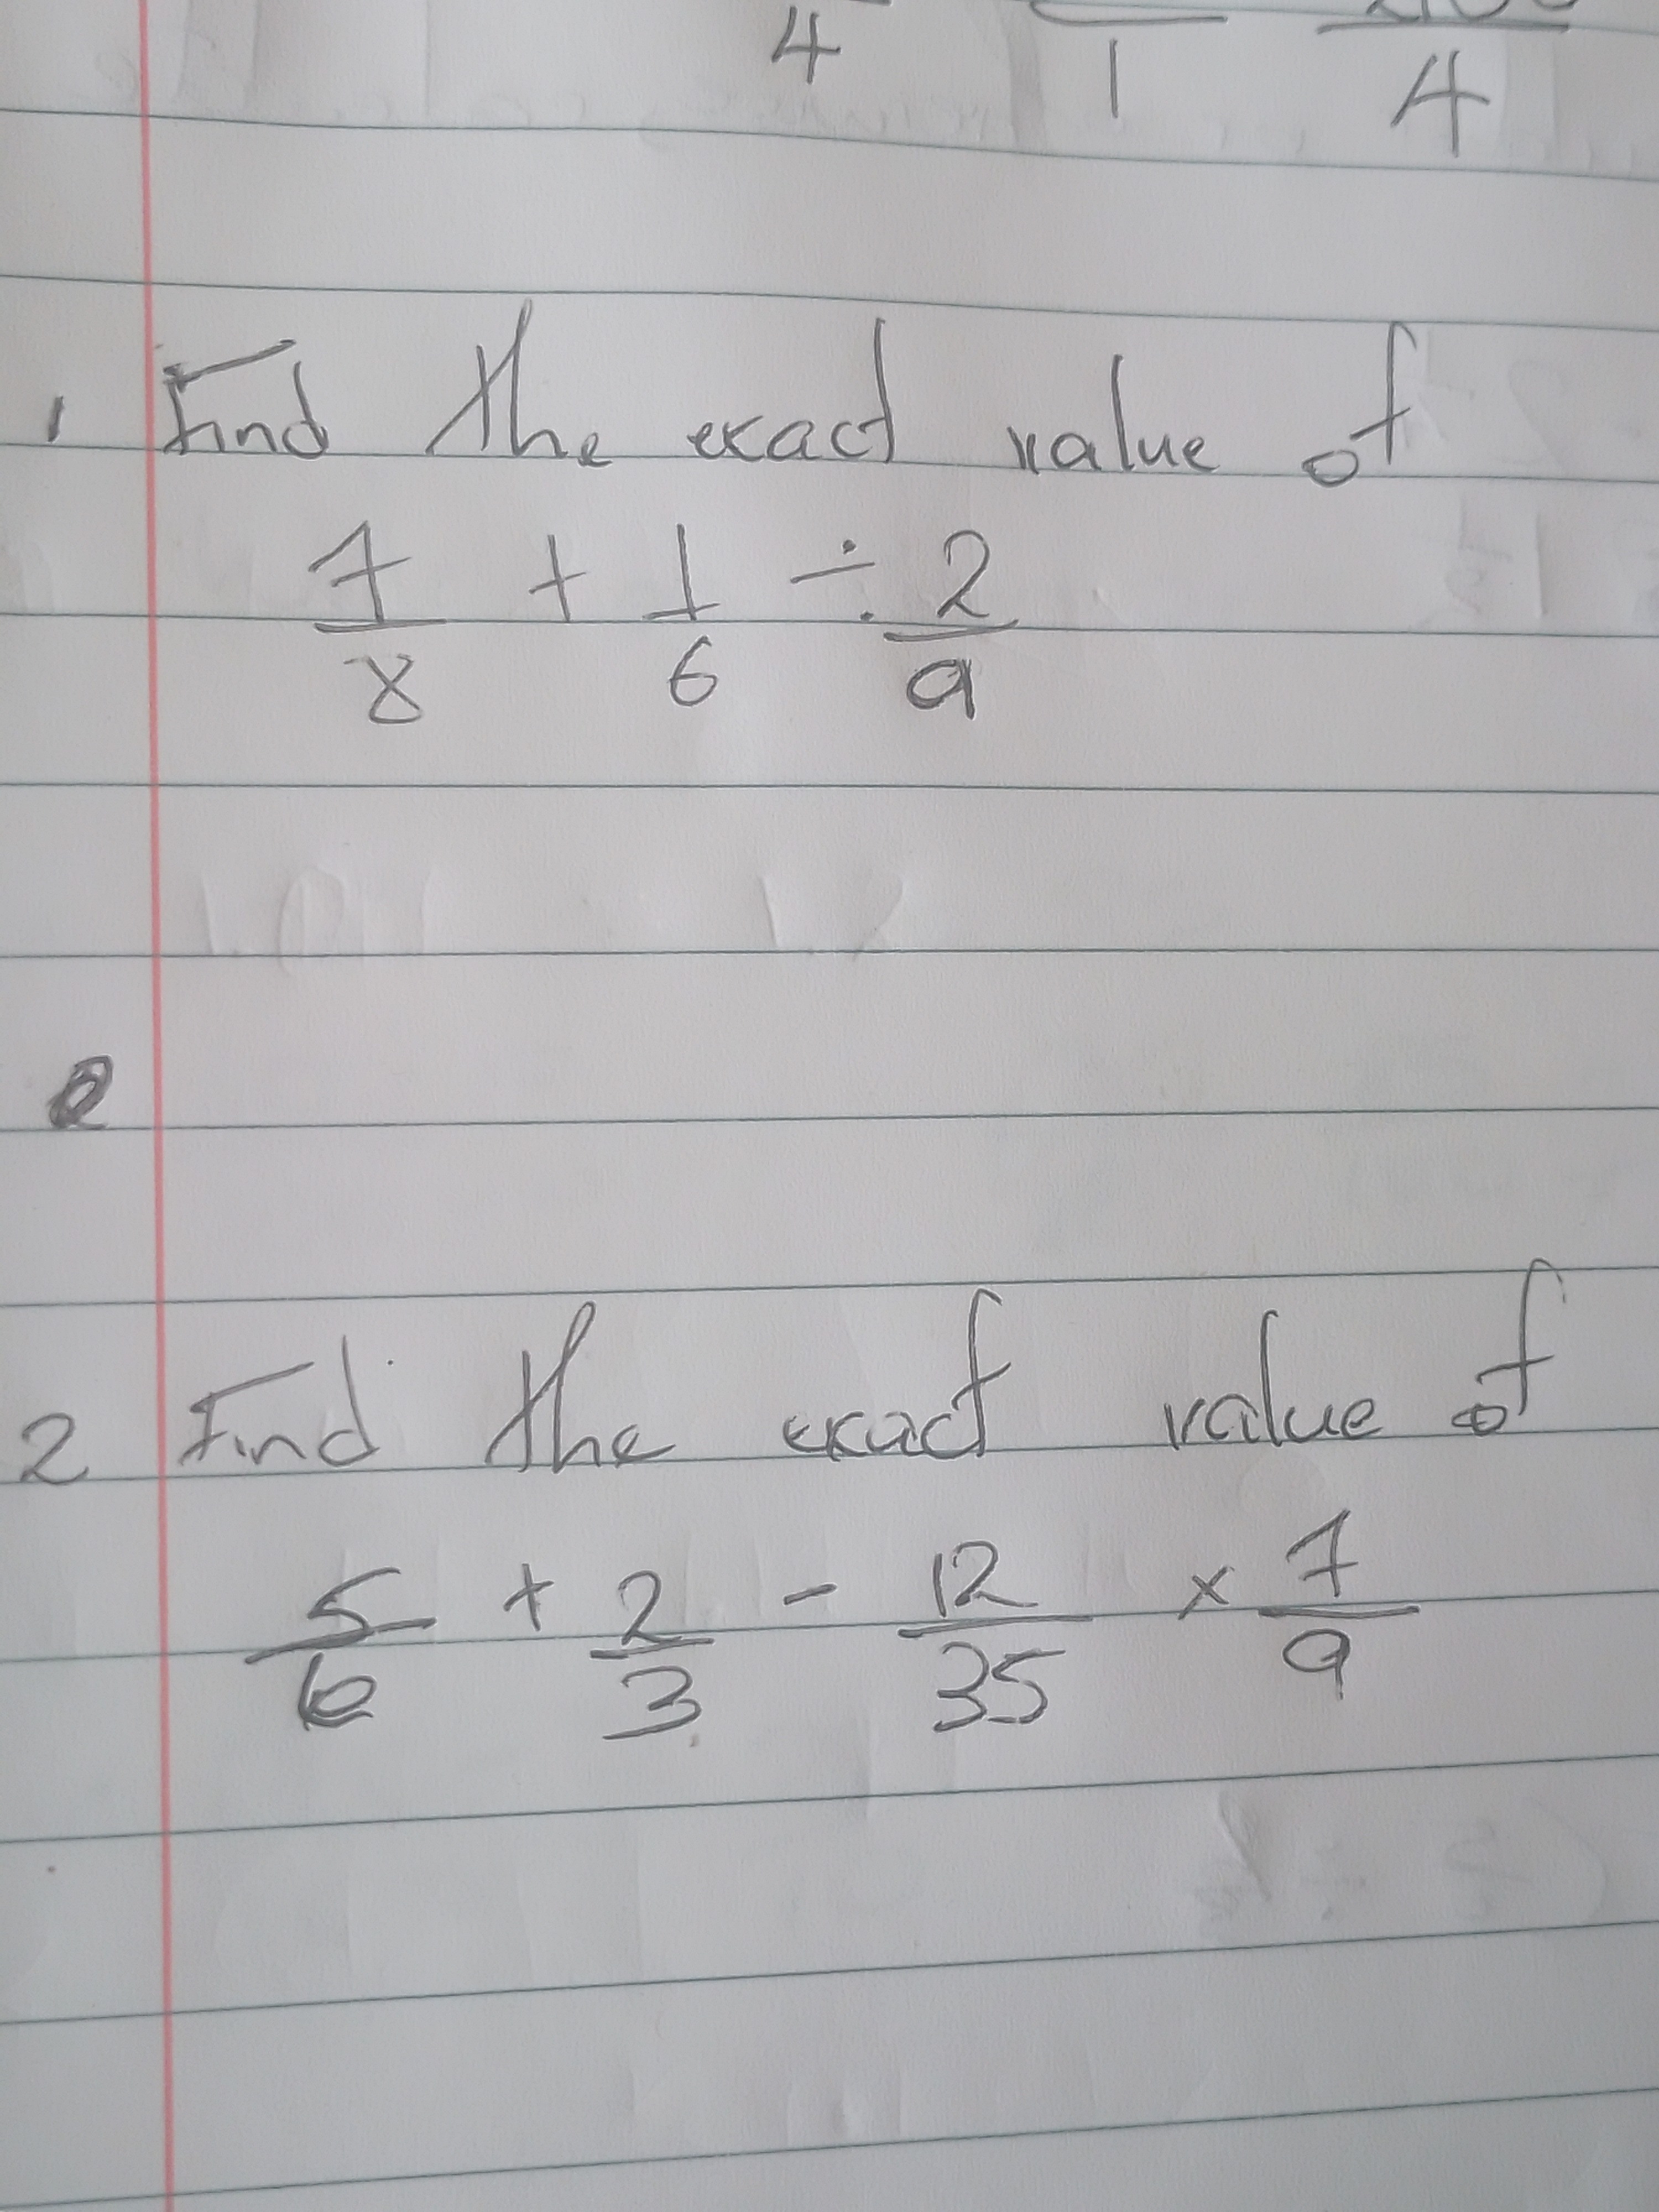 4 1 4
1 Find the exact value of
7/8 + 1/6 ÷ 2/9
2 Find the exact value of
5/6 + 2/3 - 12/35 × 7/9